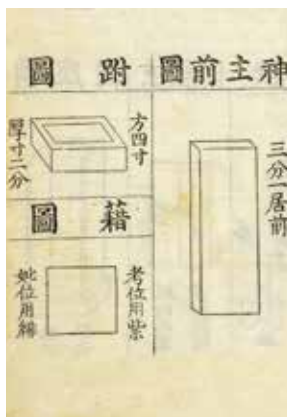 神主前圖
三分一居前
趺圖
方四寸
厚寸二分
藉圖
考位用紫
妣位用緋